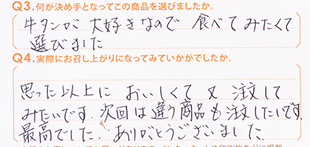 Q3.何が決め手となってこの商品を選びましたか。
牛タンが大好きなので食べてみたくて
選びました
Q4.実際にお召し上がりになってみていかがでしたか。
思った以上においしくて又注文して
みたいです。次回は違う商品も注文したいです。
最高でした。ありがとうございました。